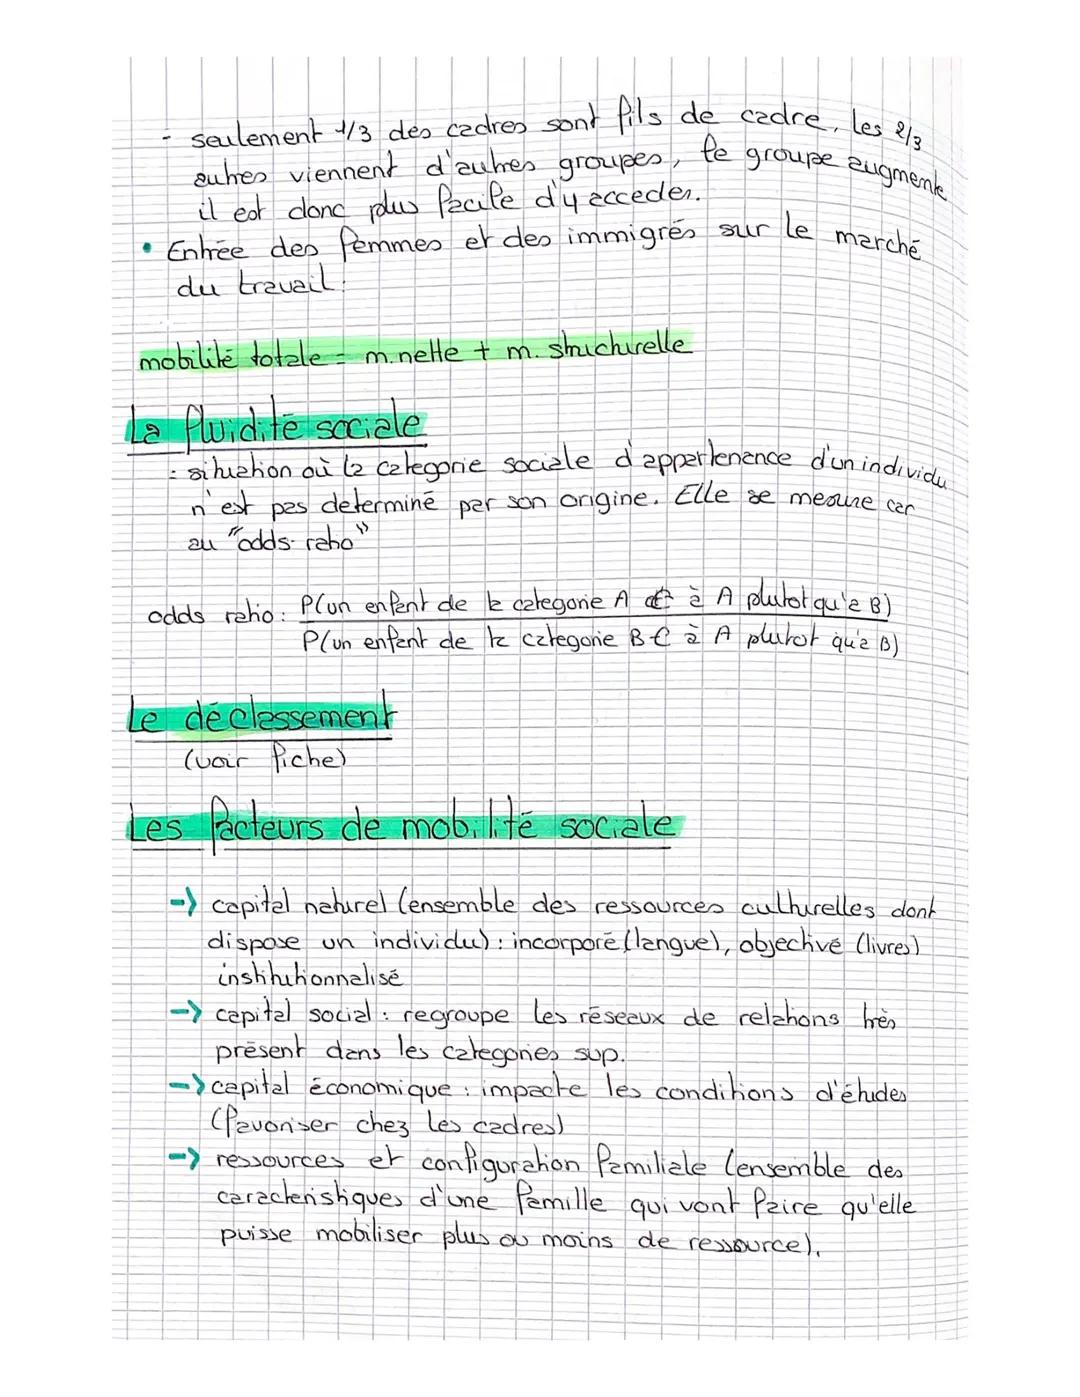 - seulement 1/3 des cadres sont fils de cadre, les 2/3
autres viennent d'autres groupes, le groupe augmente
il est donc plus facile d'y acceder.
• Entrée des femmes et des immigrés sur le marché
du travail.
mobilité totale = m. nette + m. structurelle
La fluidité sociale
: situation où la categorie sociale d'appartenance d'un individu
n'est pas determiné par son origine. Elle se mesure car
au "odds-ratio"
odds ratio : P(un enfant de la categorie A € à A plutot qu'a B)
P(un enfant de la categorie B € à A plutot qu'a B)
Le déclassement
(voir fiche)
Les facteurs de mobilité sociale
→ capital naturel (ensemble des ressources culturelles dont
dispose un individu) : incorporé (langue), objectivé (livres)
institutionnalisé
→ capital social : regroupe les réseaux de relations très
présent dans les categories sup.
→ capital économique : impacte les conditions d'études
(favoriser chez les cadres)
→ ressources et configuration familiale (ensemble des
caracteristiques d'une famille qui vont faire qu'elle
puisse mobiliser plus ou moins de ressource).